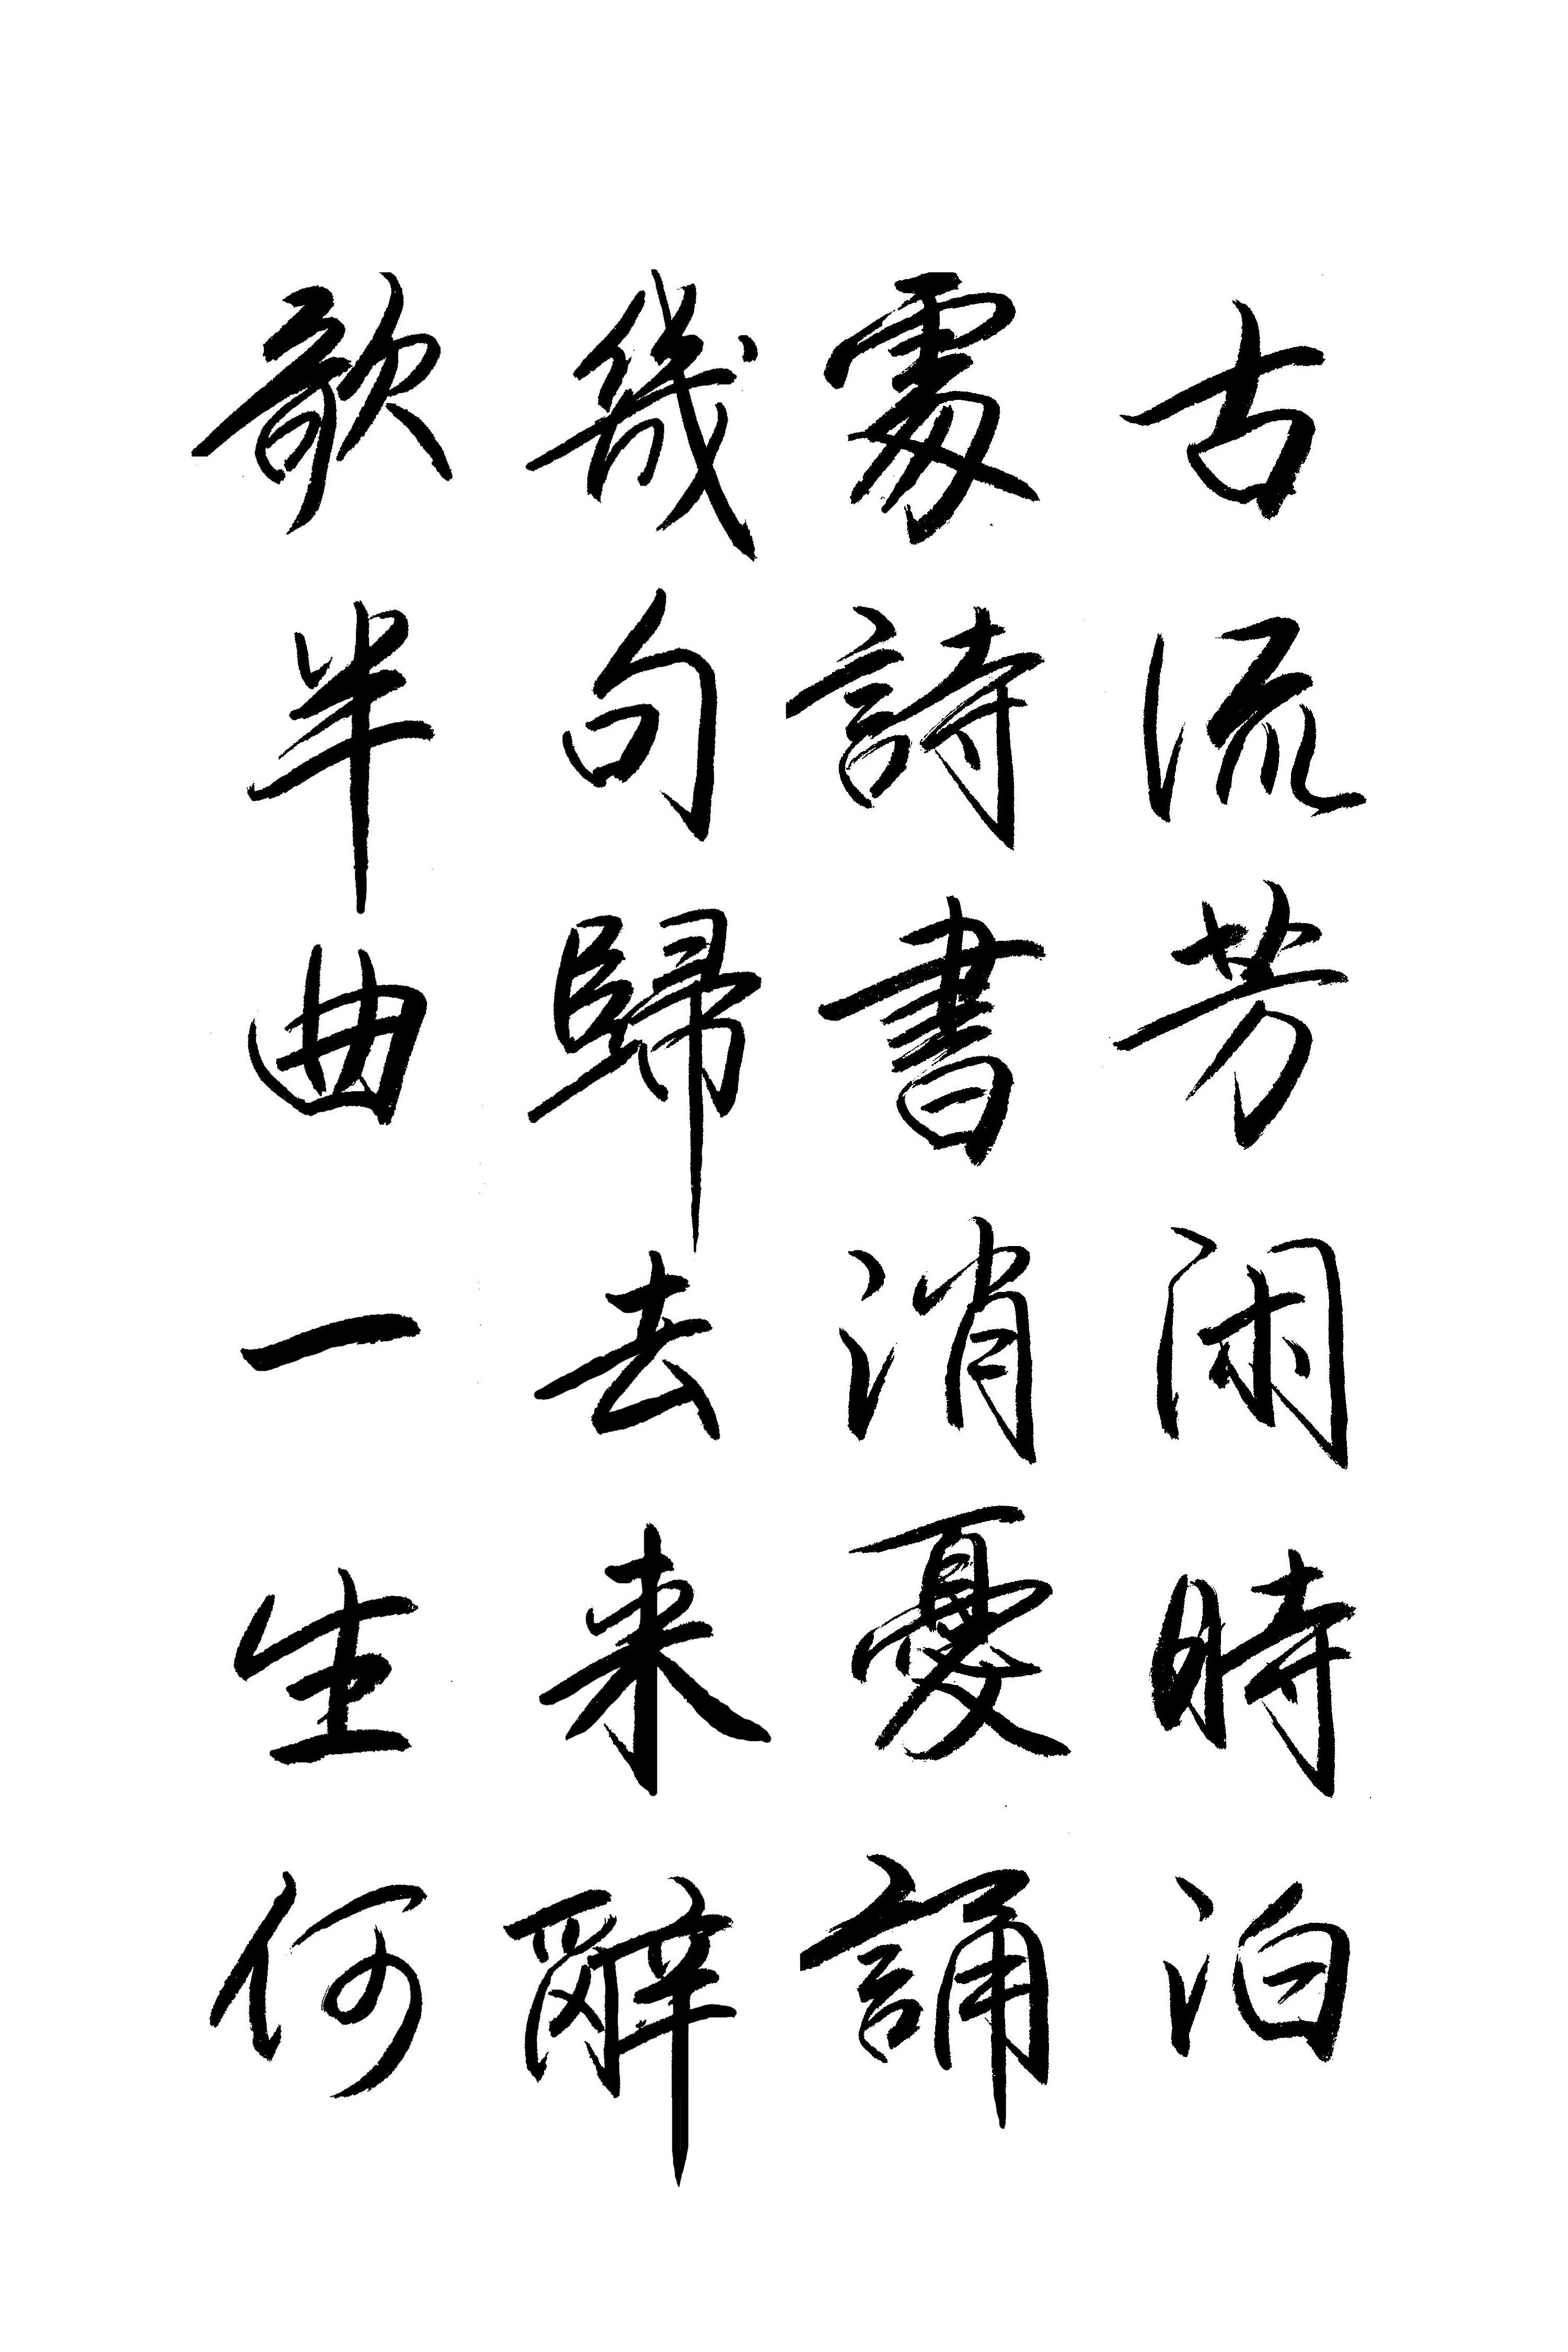 古流芳闲時泊
處詩書消憂誦
幾句歸去来辭
歌半曲一生何